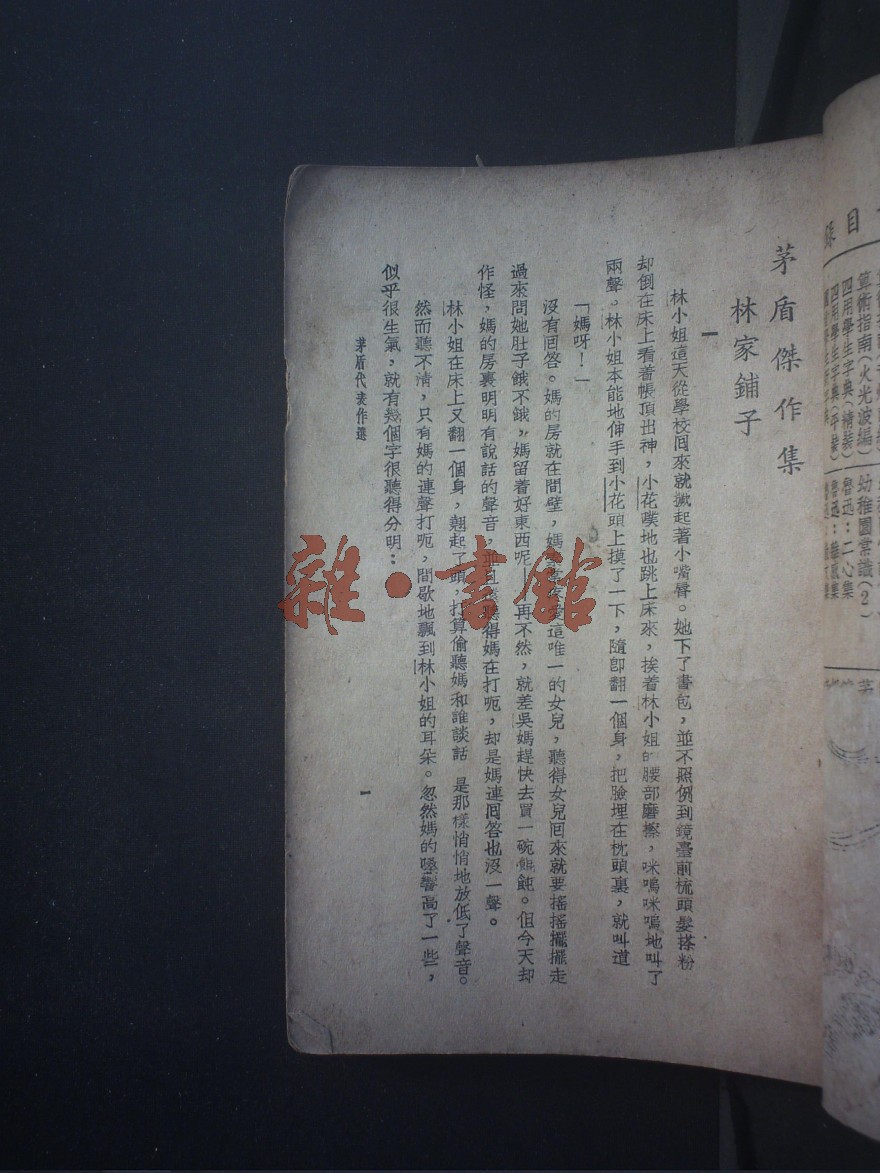 茅盾傑作集
林家鋪子
一
林小姐這天從學校囘來就撅起著小嘴脣。她下了書包,並不照例到鏡臺前梳頭髮搽粉
却倒在床上看着帳頂出神,小花噗地也跳上床來,挨着林小姐的腰部磨擦,咪嗚咪嗚地叫了
兩聲。林小姐本能地伸手到小花頭上摸了一下,隨卽翻一個身,把臉埋在枕頭裏,就叫道
「媽呀!」
沒有囘答。媽的房就在間壁,媽愛這唯一的女兒,聽得女兒囘來就要搖搖擺擺走
過來問她肚子餓不餓,媽留着好東西呢—再不然,就差吳媽趕快去買一碗餛飩。但今天却
作怪,媽的房裏明明有說話的聲音,並且聽得媽在打呃,却是媽連囘答也沒一聲。
林小姐在床上又翻一個身,翹起了頭,打算偷聽媽和誰談話 是那樣悄悄地放低了聲音。
然而聽不清,只有媽的連聲打呃,間歇地飄到林小姐的耳朵。忽然媽的嗓音高了一些,
似乎很生氣,就有幾個字很聽得分明:
茅盾代表作選
一
目錄
算術指南(火光波編)
四用學生字典(精裝)
四用學生字典(平裝)
幼稚園常識(2)
魯迅:二心集
雜·書館